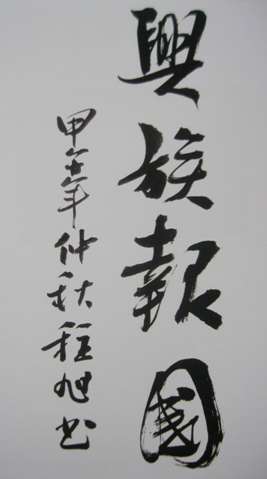 興族報國
甲午年仲秋程旭书